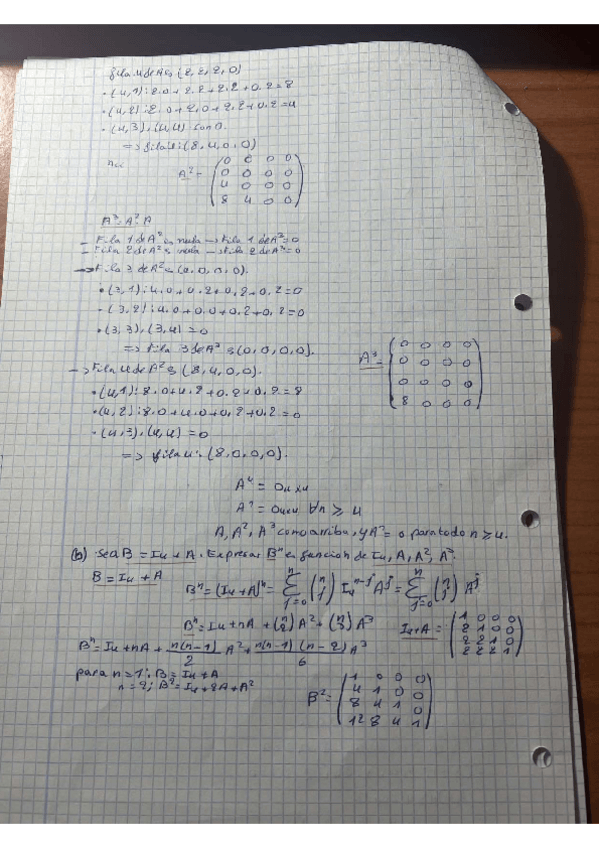 fila 4 de A es (2,2,2,0)
• (4,1): 2·0+2·2+2·2+0·2=8
• (4,2): 2·0+2·0+2·2+0·2=4
• (4,3), (4,4) son 0.
=> fila 4: (8,4,0,0)
A²=
0 0 0 0
0 0 0 0
4 0 0 0
8 4 0 0
A³=A²·A
- Fila 1 de A² es nula → fila 1 de A³=0
- Fila 2 de A² es nula → fila 2 de A³=0
→ Fila 3 de A² es (4,0,0,0).
• (3,1): 4·0+0·2+0·2+0·2=0
- (3,2): 4·0+0·0+0·2+0·2=0
• (3,3), (3,4)=0
=> fila 3 de A³ es (0,0,0,0).
A³=
0 0 0 0
0 0 0 0
0 0 0 0
8 0 0 0
→ Fila 4 de A² es (8,4,0,0).
• (4,1): 8·0+4·2+0·2+0·2=8
• (4,2): 8·0+4·0+0·2+0·2=0
• (4,3), (4,4)=0
=> fila 4: (8,0,0,0).
A⁴ = 0₄ₓ₄
Aⁿ = 0₄ₓ₄ ∀n ≥ 4
A, A², A³ como arriba, y Aⁿ=0 para todo n≥4.
(b) Sea B=I₄+A. Expresar Bⁿ en función de I₄, A, A², A³.
B=I₄+A
Bⁿ=(I₄+A)ⁿ=∑ⁿⱼ₌₀ (n j) I₄ⁿ⁻ʲ Aʲ=∑ⁿⱼ₌₀ (n j) Aʲ
Bⁿ=I₄+nA+(n 2)A²+(n 3)A³
I₄+A=
1 0 0 0
2 1 0 0
2 2 1 0
2 2 2 1
Bⁿ=I₄+nA+n(n-1)/2 A²+n(n-1)(n-2)/6 A³
para n=1: B=I₄+A
n=2: B²=I₄+2A+A²
B²=
1 0 0 0
4 1 0 0
8 4 1 0
12 8 4 1